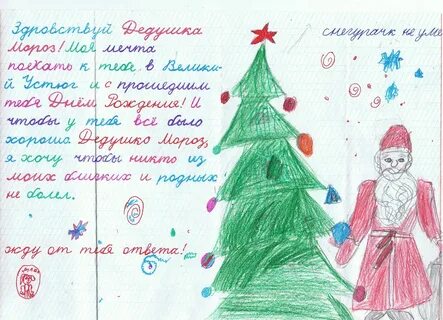 Здравствуй Дедушка
Мороз! Моя мечта
поехать к тебе, в Велики-
й Устюг и с прошедшим
тебя Днём Рождения! И
чтобы у тебя всё было
хорошо Дедушко Мороз,
я хочу чтобы никто из
моих близких и родных
не болел.
жду от тебя ответа!
снегурачк не уме